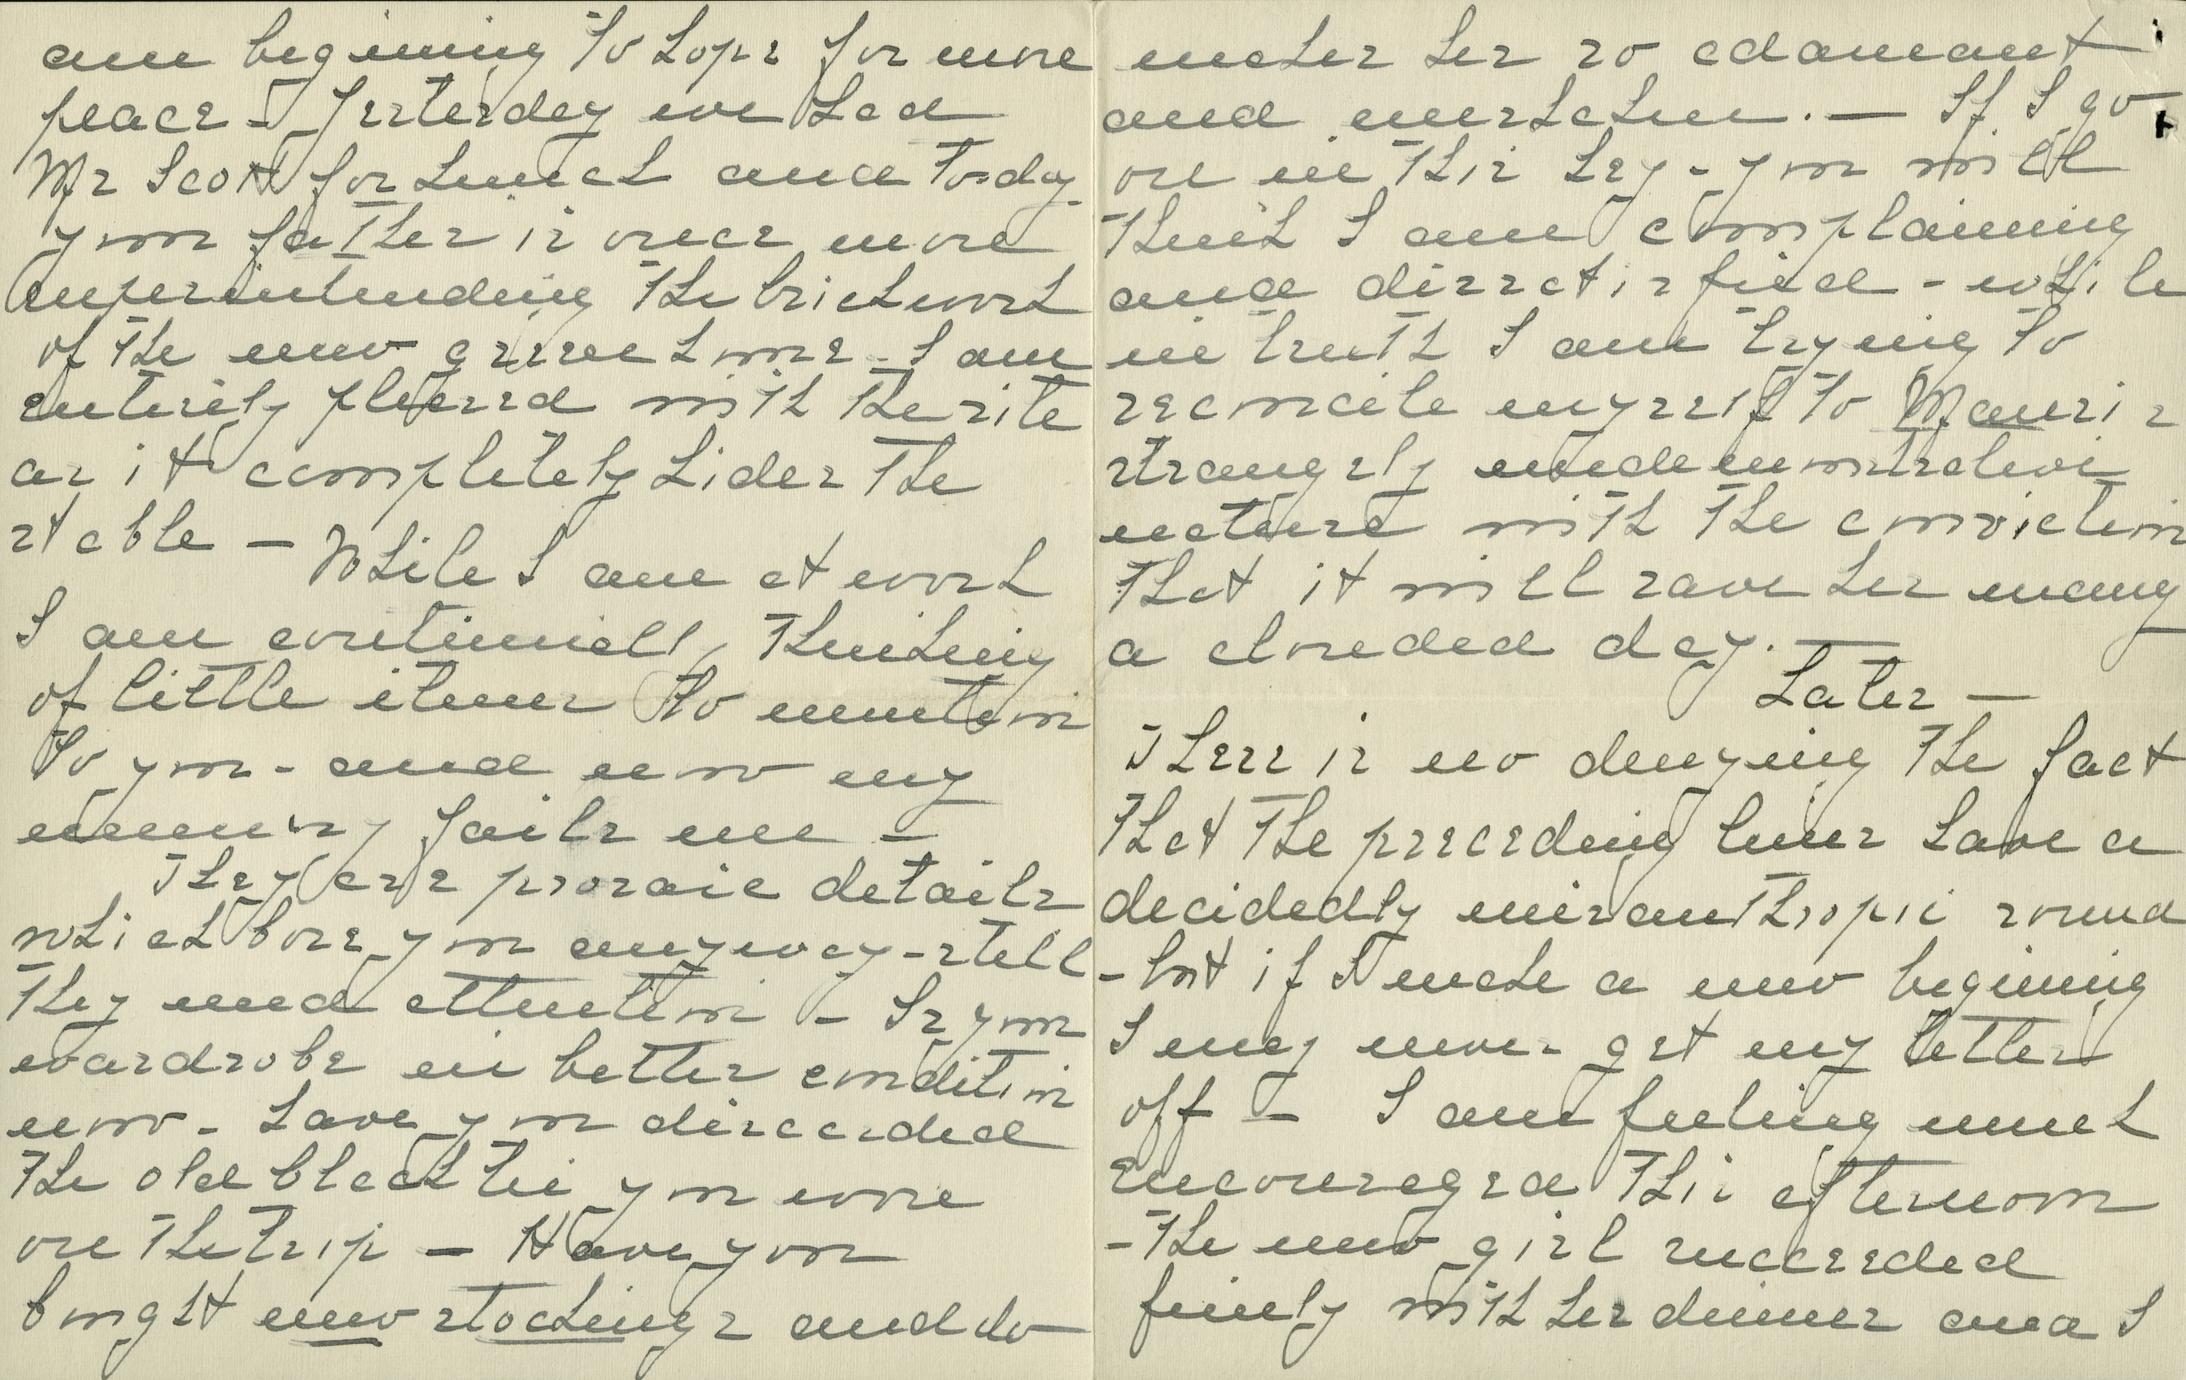 am begining to hope for more
peace - Yesterday we had
Mr Scott for lunch and today
your father is once more
superintending the brickwork
of the new greenhouse - I am
entirely pleased with the site
as it completely hides the
stable - While I am at work
I am continually thinking
of little items to mention
to you - and now my
memory fails me -
They are prosaic details
which bore you anyway - still
they need attention - Is your
wardrobe in better condition
now - have you discarded
the old black tie you wore
on the trip - Have you
bought new stockings and do
makes her so adamant
and . - If I go
on in this key - you will
think I am complaining
and dissatisfied - while
in truth I am trying to
reconcile myself to
strangely undemonstrative
nature with the conviction
that it will save her many
a clouded day. -
Later -
There is no denying the fact
that the preceeding lines have a
decidedly misanthropic sound
- but if I make a new begining
I may never get my letter
off - I am feeling much
encouraged this afternoon
- the new girl succeeded
finely with her dinner and I